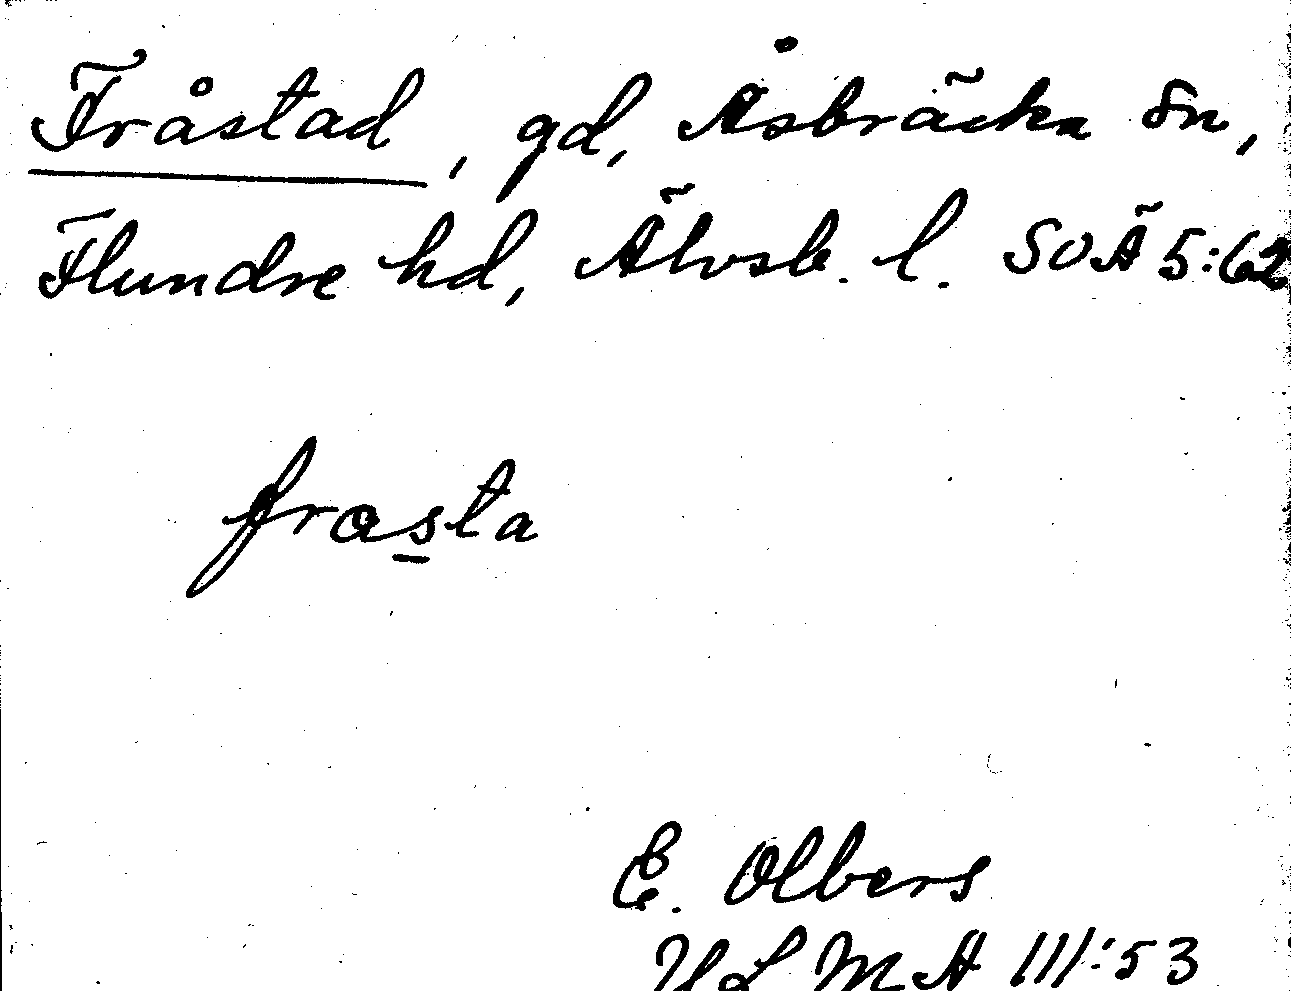 Fråstad, gd, Åsbräcka sn,
Flundre hd, Älvsb. l. SOÄ 5:62
frasta
E. Olbers
VLMA III:53